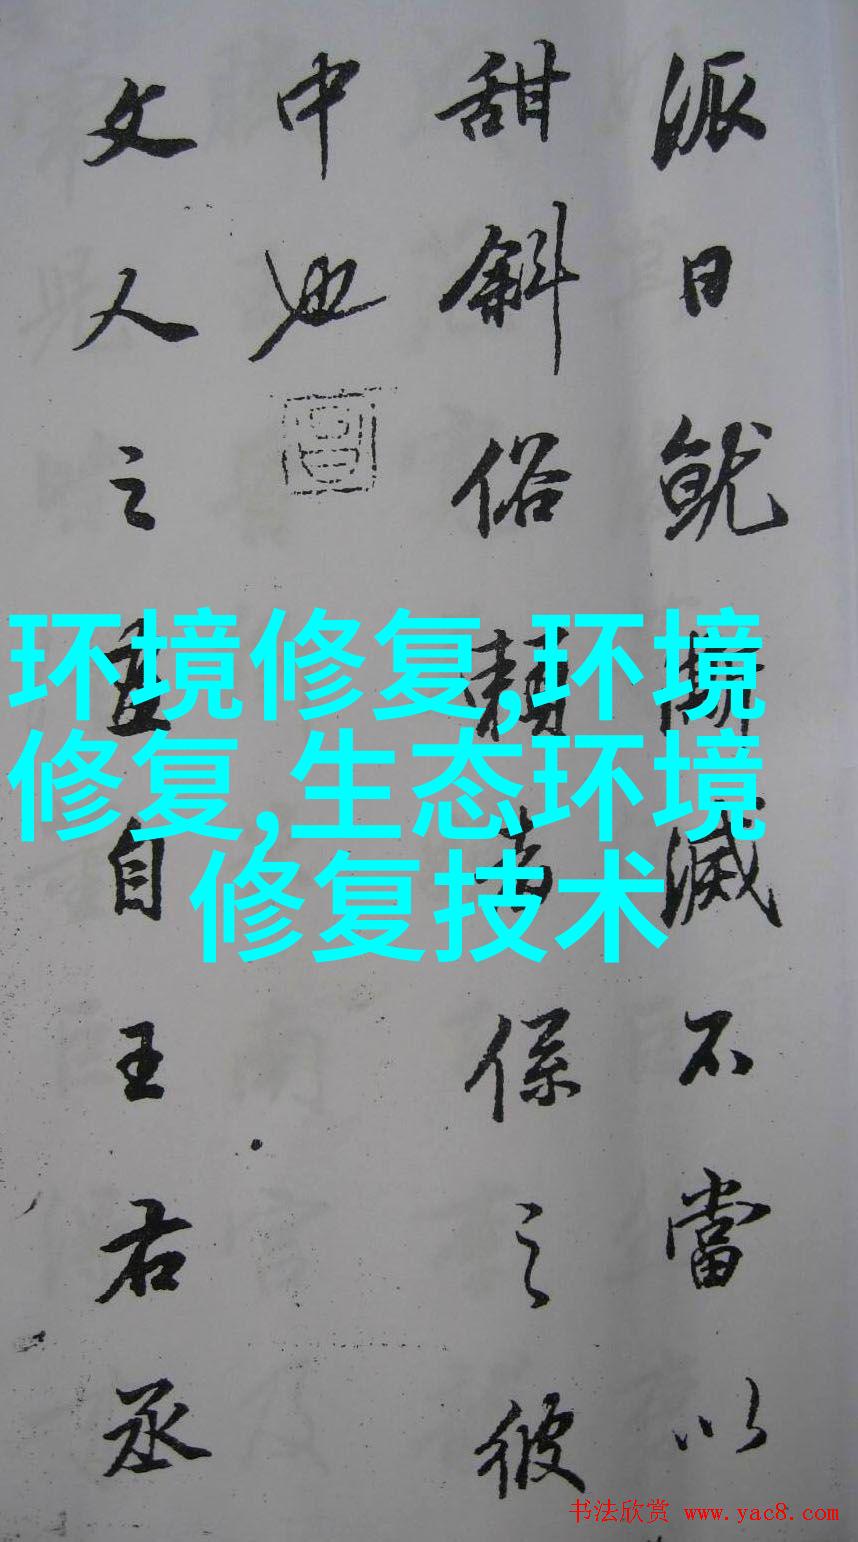 派日就澌滅不當以
甜斜俗賴者係之彼
中也
文人之畫自王右丞
环境修复,环境
修复,生态环境
修复技术
书法欣赏 www.yac8.com